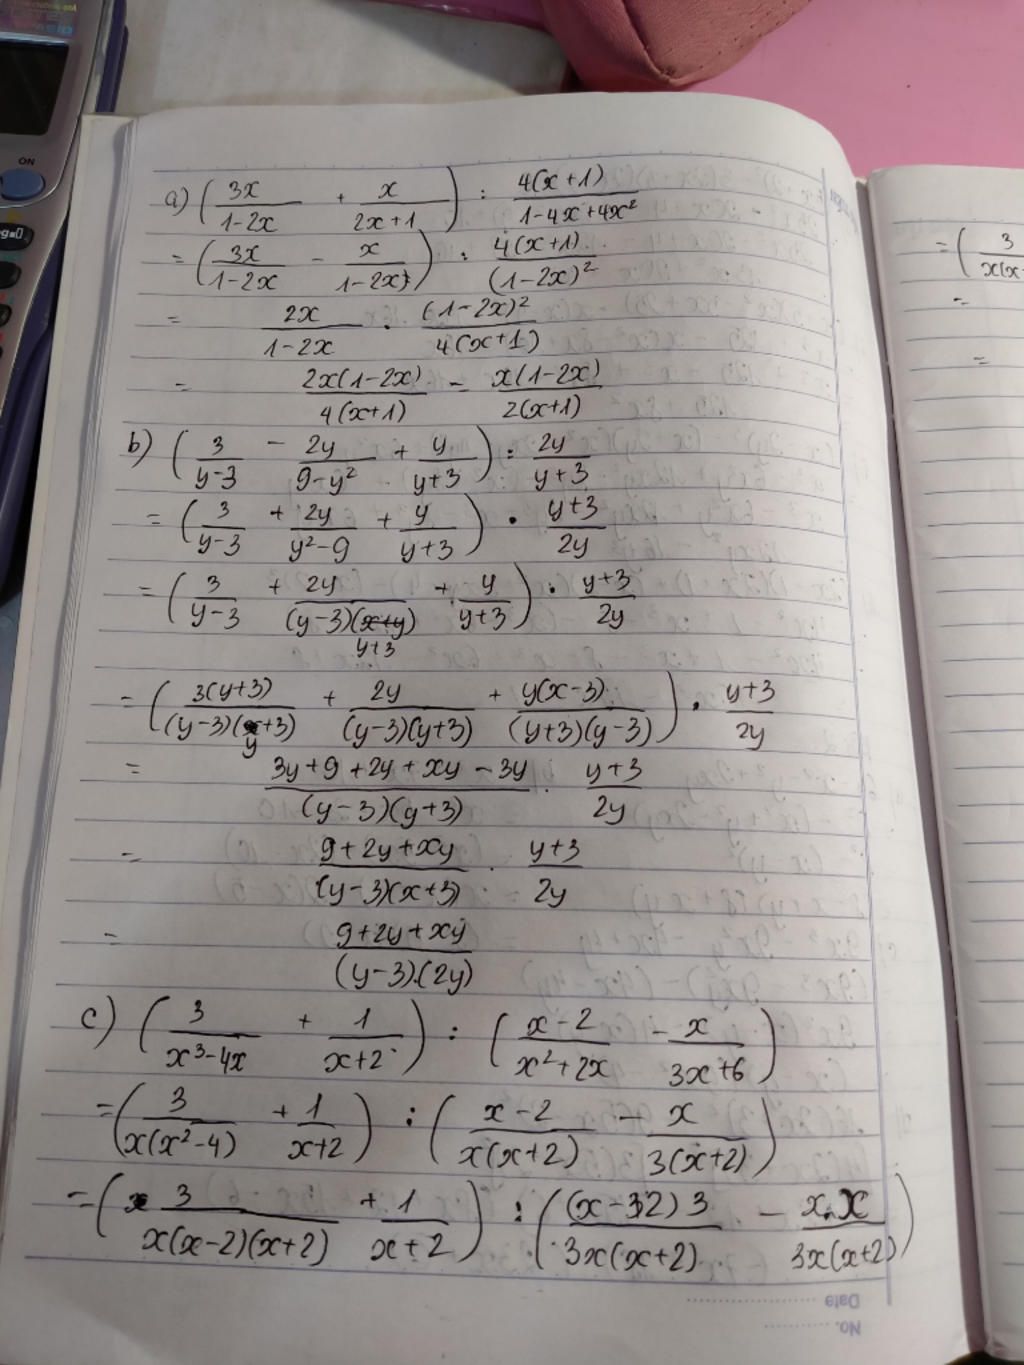 ON
a) (3x/(1-2x) + x/(2x+1)) : 4(x+1)/(1-4x+4x²)
= (3x/(1-2x) - x/(1-2x)) : 4(x+1)/(1-2x)²
= 2x/(1-2x) . (1-2x)²/4(x+1)
= 2x(1-2x)/4(x+1) = x(1-2x)/2(x+1)
b) (3/(y-3) - 2y/(9-y²) + y/(y+3)) : 2y/(y+3)
= (3/(y-3) + 2y/(y²-9) + y/(y+3)) . (y+3)/2y
= (3/(y-3) + 2y/(y-3)(y+3) + y/(y+3)) . (y+3)/2y
= (3(y+3)/(y-3)(y+3) + 2y/(y-3)(y+3) + y(x-3)/(y+3)(y-3)) . (y+3)/2y
= (3y+9+2y+xy-3y)/(y-3)(y+3) . (y+3)/2y
= (9+2y+xy)/(y-3)(x+3) . (y+3)/2y
= (9+2y+xy)/(y-3).(2y)
c) (3/(x³-4x) + 1/(x+2)) : ((x-2)/(x²+2x) - x/(3x+6))
= (3/x(x²-4) + 1/(x+2)) : ((x-2)/x(x+2) - x/3(x+2))
= (3/x(x-2)(x+2) + 1/(x+2)) : ((x-2)3/3x(x+2) - x.x/3x(x+2))
Date
No.
= (3
=
=